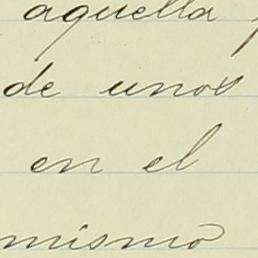 aquella
de unos
en el
mismo